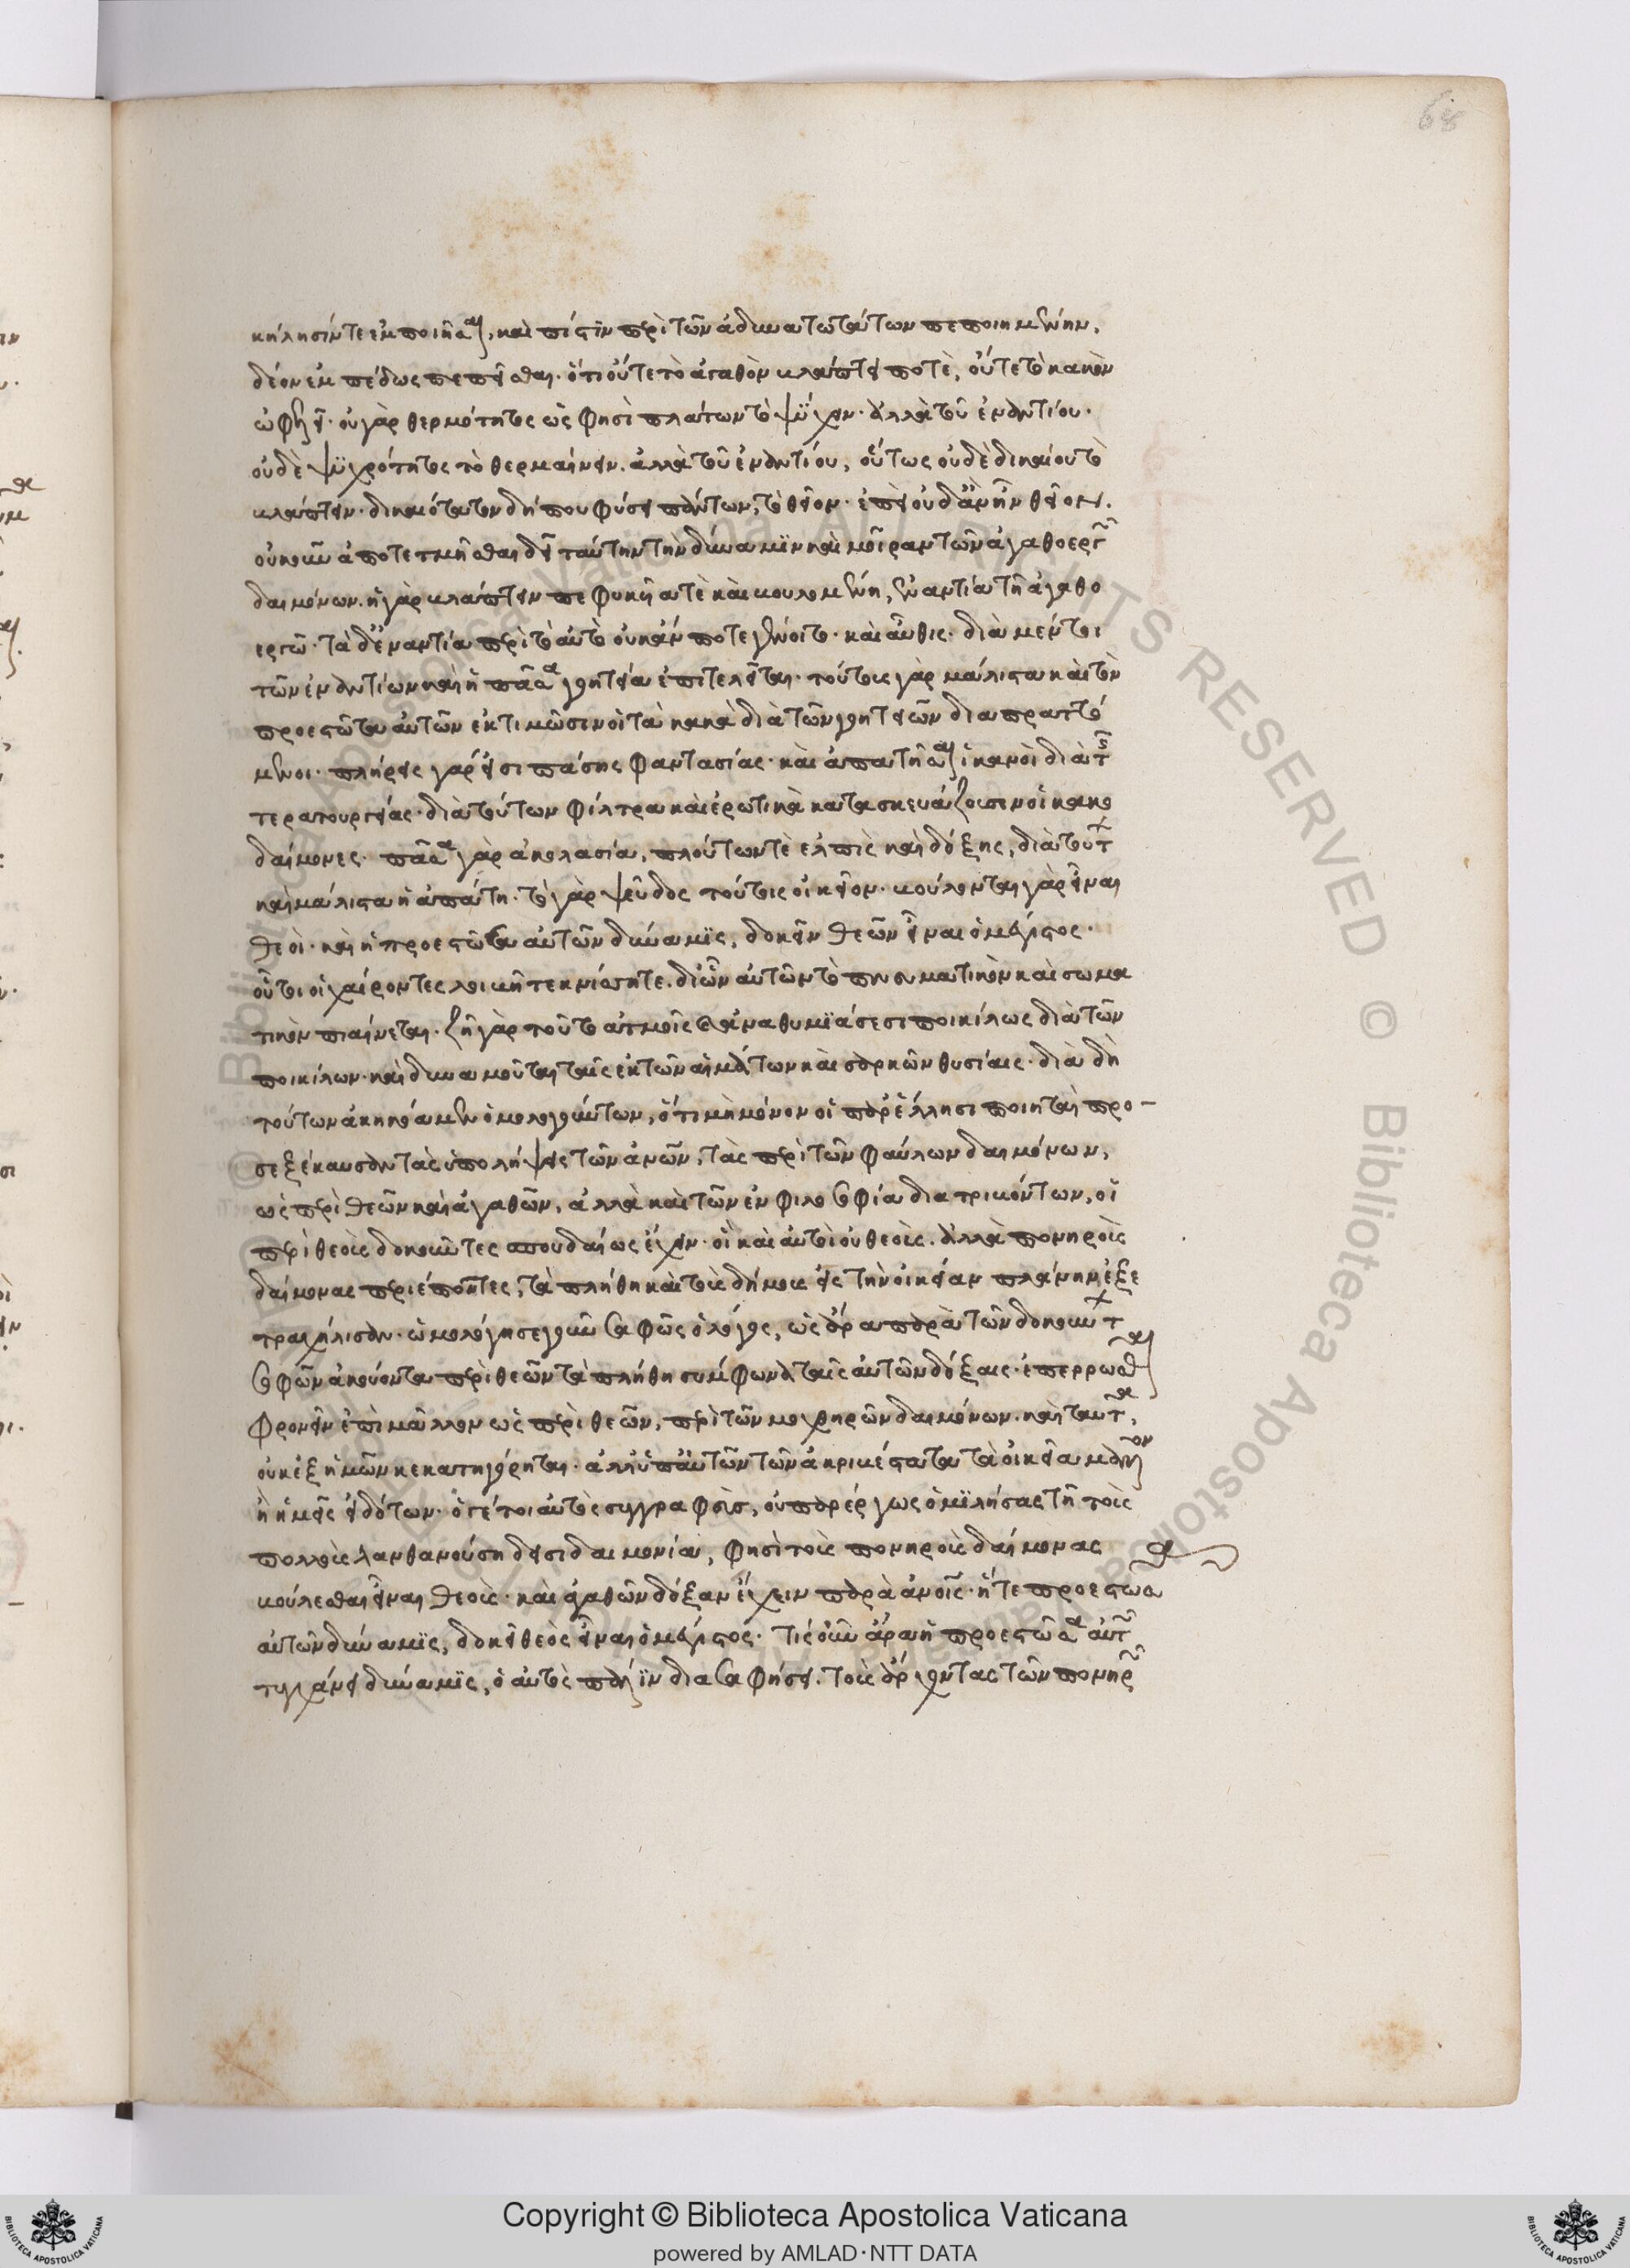 68
κήλησίν τε ἐμποιῆσαι, καὶ πίστιν περὶ τῶν ἀδυνατωτάτων πεποιημένην.
δέον ἐμπέδως πεπεῖσθαι. ὅτι οὔτε τὸ ἀγαθὸν βλάπτει ποτὲ, οὔτε τὸ κακὸν
ὠφελεῖ. οὐ γὰρ θερμότητος ὥς φησὶ πλάτων τὸ ψύχειν. ἀλλὰ τοῦ ἐναντίου.
οὐδὲ ψυχρότητος τὸ θερμαίνειν. ἀλλὰ τοῦ ἐναντίου, οὕτως οὐδὲ δικαίου τὸ
βλάπτειν. δικαιότατον δή που φύσει πάντων, τὸ θεῖον. ἐπεὶ οὐδ' ἂν ἦν θεῖον.
οὐκοῦν ἀποτετμῆσθαι δεῖ ταύτην τὴν δύναμιν καὶ μοῖραν τῶν ἀγαθοεργῶν
δαιμόνων. ἡ γὰρ βλάπτειν πεφυκυῖά τε καὶ βουλομένη, ἐναντία τῇ ἀγαθο
εργῷ. τὰ δ' ἐναντία περὶ τὸ αὐτὸ οὐκ ἄν ποτε γένοιτο. καὶ αὖθις. διὰ μέντοι
τῶν ἐναντίων καὶ ἡ πᾶσα γοητεία ἐπιτελεῖται. τούτους γὰρ μάλιστα καὶ τὸν
προεστῶτα αὐτῶν ἐκτιμῶσιν οἱ τὰ κακὰ διὰ τῶν γοητειῶν διαπραττό
μενοι. πλήρεις γάρ εἰσι πάσης φαντασίας. καὶ ἀπατῆσαι ἱκανοὶ διὰ τῆς
τερατουργίας. διὰ τούτων φίλτρα καὶ ἐρωτικὰ κατασκευάζουσιν οἱ κακο
δαίμονες. πᾶσα γὰρ ἀκολασία, πλούτων τὲ ἐλπὶς καὶ δόξης, διὰ τούτων
καὶ μάλιστα ἡ ἀπάτη. τὸ γὰρ ψεῦδος τούτοις οἰκεῖον. βούλονται γὰρ εἶναι
θεοὶ. καὶ ἡ προεστῶσα αὐτῶν δύναμις, δοκεῖν θεῶν εἶναι ὁ μέγιστος.
οὗτοι οἱ χαίροντες λοιβῇ τε κνίσσῃ τε. δι' ὧν αὐτῶν τὸ πνευματικὸν καὶ σωμα
τικὸν πιαίνεται. ζῇ γὰρ τοῦτο ἀτμοῖς καὶ ἀναθυμιάσεσι ποικίλως διὰ τῶν
ποικίλων. καὶ δυναμοῦται ταῖς ἐκ τῶν αἱμάτων καὶ σαρκῶν θυσίαις. διὰ δὴ
τούτων ἀκηκόαμεν ὁμολογούντων, ὅτι μὴ μόνον οἱ παρ' ἕλλησι ποιηταὶ προ-
σεξέκαυσαν τὰς ὑπολήψεις τῶν ἀνῶν, τὰς περὶ τῶν φαύλων δαιμόνων,
ὡς περὶ θεῶν καὶ ἀγαθῶν, ἀλλὰ καὶ τῶν ἐν φιλοσοφία διατριβόντων, οἱ
περὶ θεοὺς δοκοῦντες σπουδαίως ἔχειν. οἳ καὶ αὐτοὶ οὐ θεοὺς. ἀλλὰ πονηροὺς
δαίμονας περιέποντες, τὰ πλήθη καὶ τοὺς δήμους εἰς τὴν οἰκείαν πλάνην ἐξε
τραχήλισαν. ὡμολόγησε γοῦν σαφῶς ὁ λόγος, ὡς ἄρα παρὰ τῶν δοκούντων
σοφῶν ἀκούοντα περὶ θεῶν τὰ πλήθη σύμφωνα ταῖς αὐτῶν δόξαις. ἐπερρώσθαι
φρονεῖν ἐπὶ μᾶλλον ὡς περὶ θεῶν, περὶ τῶν μοχθηρῶν δαιμόνων. καὶ ταῦτα δὲ,
οὐκ ἐξ ἡμῶν κεκατηγόρηται. ἀλλ' ὑπ' αὐτῶν τῶν ἀκριβέστατα τὰ οἰκεῖα μᾶλλον
ἢ ἡμεῖς εἰδότων. ὅ γέ τοι αὐτὸς συγγραφεὺς, οὐ παρέργως ὁμιλήσας τῇ τοὺς
πολλοὺς λανθανούση δεισιδαιμονία, φησὶ τοὺς πονηροὺς δαίμονας
βούλεσθαι εἶναι θεοὺς. καὶ ἀγαθῶν δόξαν ἔχειν παρὰ ἀνοις. ἥ τε προεστῶσα
αὐτῶν δύναμις, δοκεῖ θεὸς εἶναι ὁ μέγιστος. τίς οὖν ἄρα ἡ προεστῶσα αὐτῶν
τυγχάνει δύναμις, ὁ αὐτὸς πάλιν διασαφήσει. τοὺς ἄρχοντας τῶν πονηρῶν